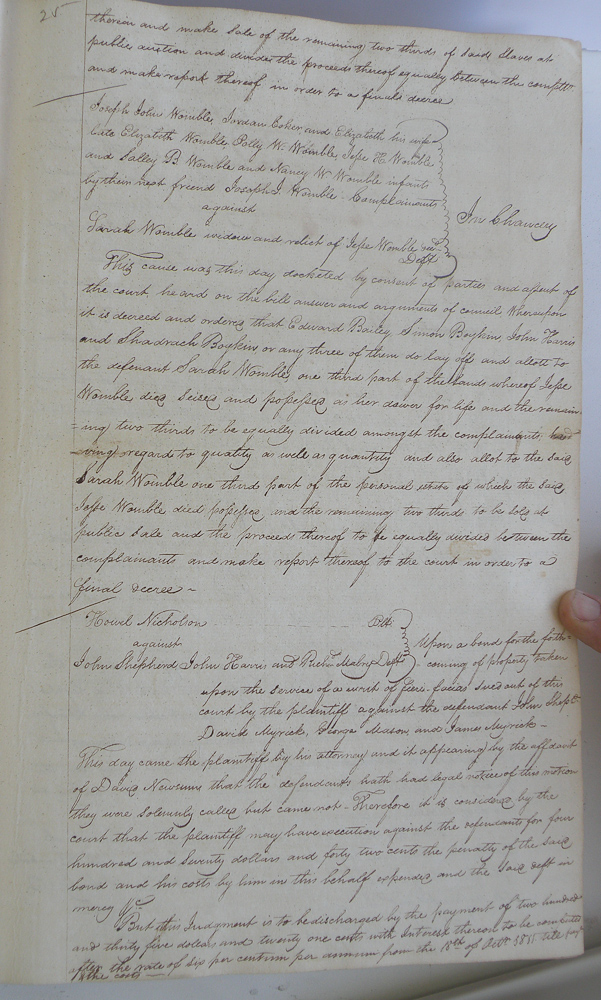 25
therein and make sale of the remaining two thirds of said slaves at
public auction and divide the proceeds thereof equally between the complts
and make report thereof in order to a final decree
Joseph John Womble, Jordan Coker and Elizabeth his wife
late Elizabeth Womble, Polly W. Womble, Jesse H. Womble
and Salley B. Womble and Nancy W Womble infants
by their next friend Joseph J. Womble Complainants
against
In Chancey
Sarah Womble widow and relict of Jesse Womble
Deft
This cause was this day docketed by consent of parties and assent of
the court, heard on the bill answer and arguments of council Whereupon
it is decreed and ordered that Edward Bailey, Simon Boykin, John Harris
and Shadrach Boykin, or any three of them do lay off and allott to
the defenant Sarah Womble, one third part of the lands whereof Jesse
Womble died seised and possessed as her dower for life and the remain-
=ing two thirds to be equally divided amongst the complainants,
regard to quality as well as quantity and also allot to the said
Sarah Womble one third part of the personal estate of which the said
Jesse Womble died possessed, and the remaining two thirds to be sold at
public sale and the proceeds thereof to be equally divided between the
complainants and make report thereof to the court in order to a
final decree ~
Howel Nicholson Plt
against
Upon a bond for the forth=
John Shepherd, John Harris and Richd Mabry Defts
- coming of property taken
upon the service of a writ of fieri-facias sued out of this
court by the plaintiff against the defendant John Shepd
David Myrick, George Mason, and James Myrick -
This day came the plaintiff by his attorney and it appearing by the affidavit
of David Newsum that the defendants hath had legal notice of this motion
they were solemnly called but came not - Therefore it is considered by the
court that the plaintiff may have execution against the defendants for four
hundred and seventy dollars and forty two cents the penalty of the said
bond and his costs by him in this behalf expended and the said deft in
mercy &c.
But this Judgment is to be discharged by the payment of two hundred
and thirty five dollars and twenty one cents with Interest thereon to be computed
after the rate of six per centum per annum from the 18th of Octr 1811 till paid
& the costs